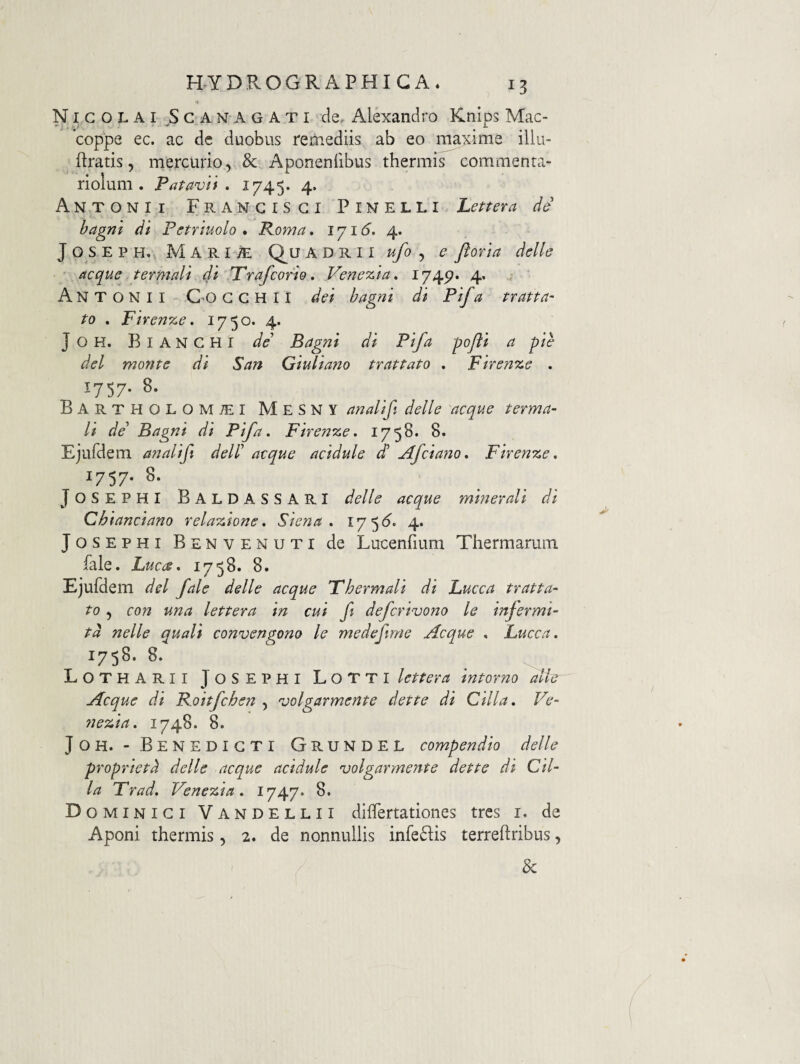 HYDROGRAPHICA. 13
NICOLAI SCANAGATI de Alexandro Knips Mac-
coppe ec. ac de duobus remediis ab eo maxime illu-
ſtratis, mercurio, & Aponenſibus thermis commenta-
riolum. Patavii. 1745. 4.
ANTONII FRANCISCI PINELLI Lettera de'
bagni di Petriuolo. Roma. 1716. 4.
JOSEPH. MARIÆ QUADRII uſo, e ſtoria delle
acque termali di Traſcorio. Venezia. 1749. 4.
ANTONII COCCHII dei bagni di Piſa tratta-
to. Firenze. 1750. 4.
JOH. BIANCHI de' Bagni di Piſa poſti a piè
del monte di San Giuliano trattato. Firenze.
1757. 8.
BARTHOLOMÆI MESNY analiſi delle acque terma-
li de' Bagni di Piſa. Firenze. 1758. 8.
Ejuſdem analiſi dell' acque acidule d' Aſciano. Firenze.
1757. 8.
JOSEPHI BALDASSARI delle acque minerali di
Chianciano relazione. Siena. 1756. 4.
JOSEPHI BENVENUTI de Lucenſium Thermarum
ſale. Lucæ. 1758. 8.
Ejuſdem del ſale delle acque Thermali di Lucca tratta-
to, con una lettera in cui ſi deſcrivono le infermi-
tà nelle quali convengono le medeſime Acque. Lucca.
1758. 8.
LOTHARII JOSEPHI LOTTI lettera intorno alle
Acque di Roitſchen, volgarmente dette di Cilla. Ve-
nezia. 1748. 8.
JOH.-BENEDICTI GRUNDEL compendio delle
proprietà delle acque acidule volgarmente dette di Cil-
la Trad. Venezia. 1747. 8.
DOMINICI VANDELLII diſſertationes tres 1. de
Aponi thermis, 2. de nonnullis inſectis terreſtribus,
&